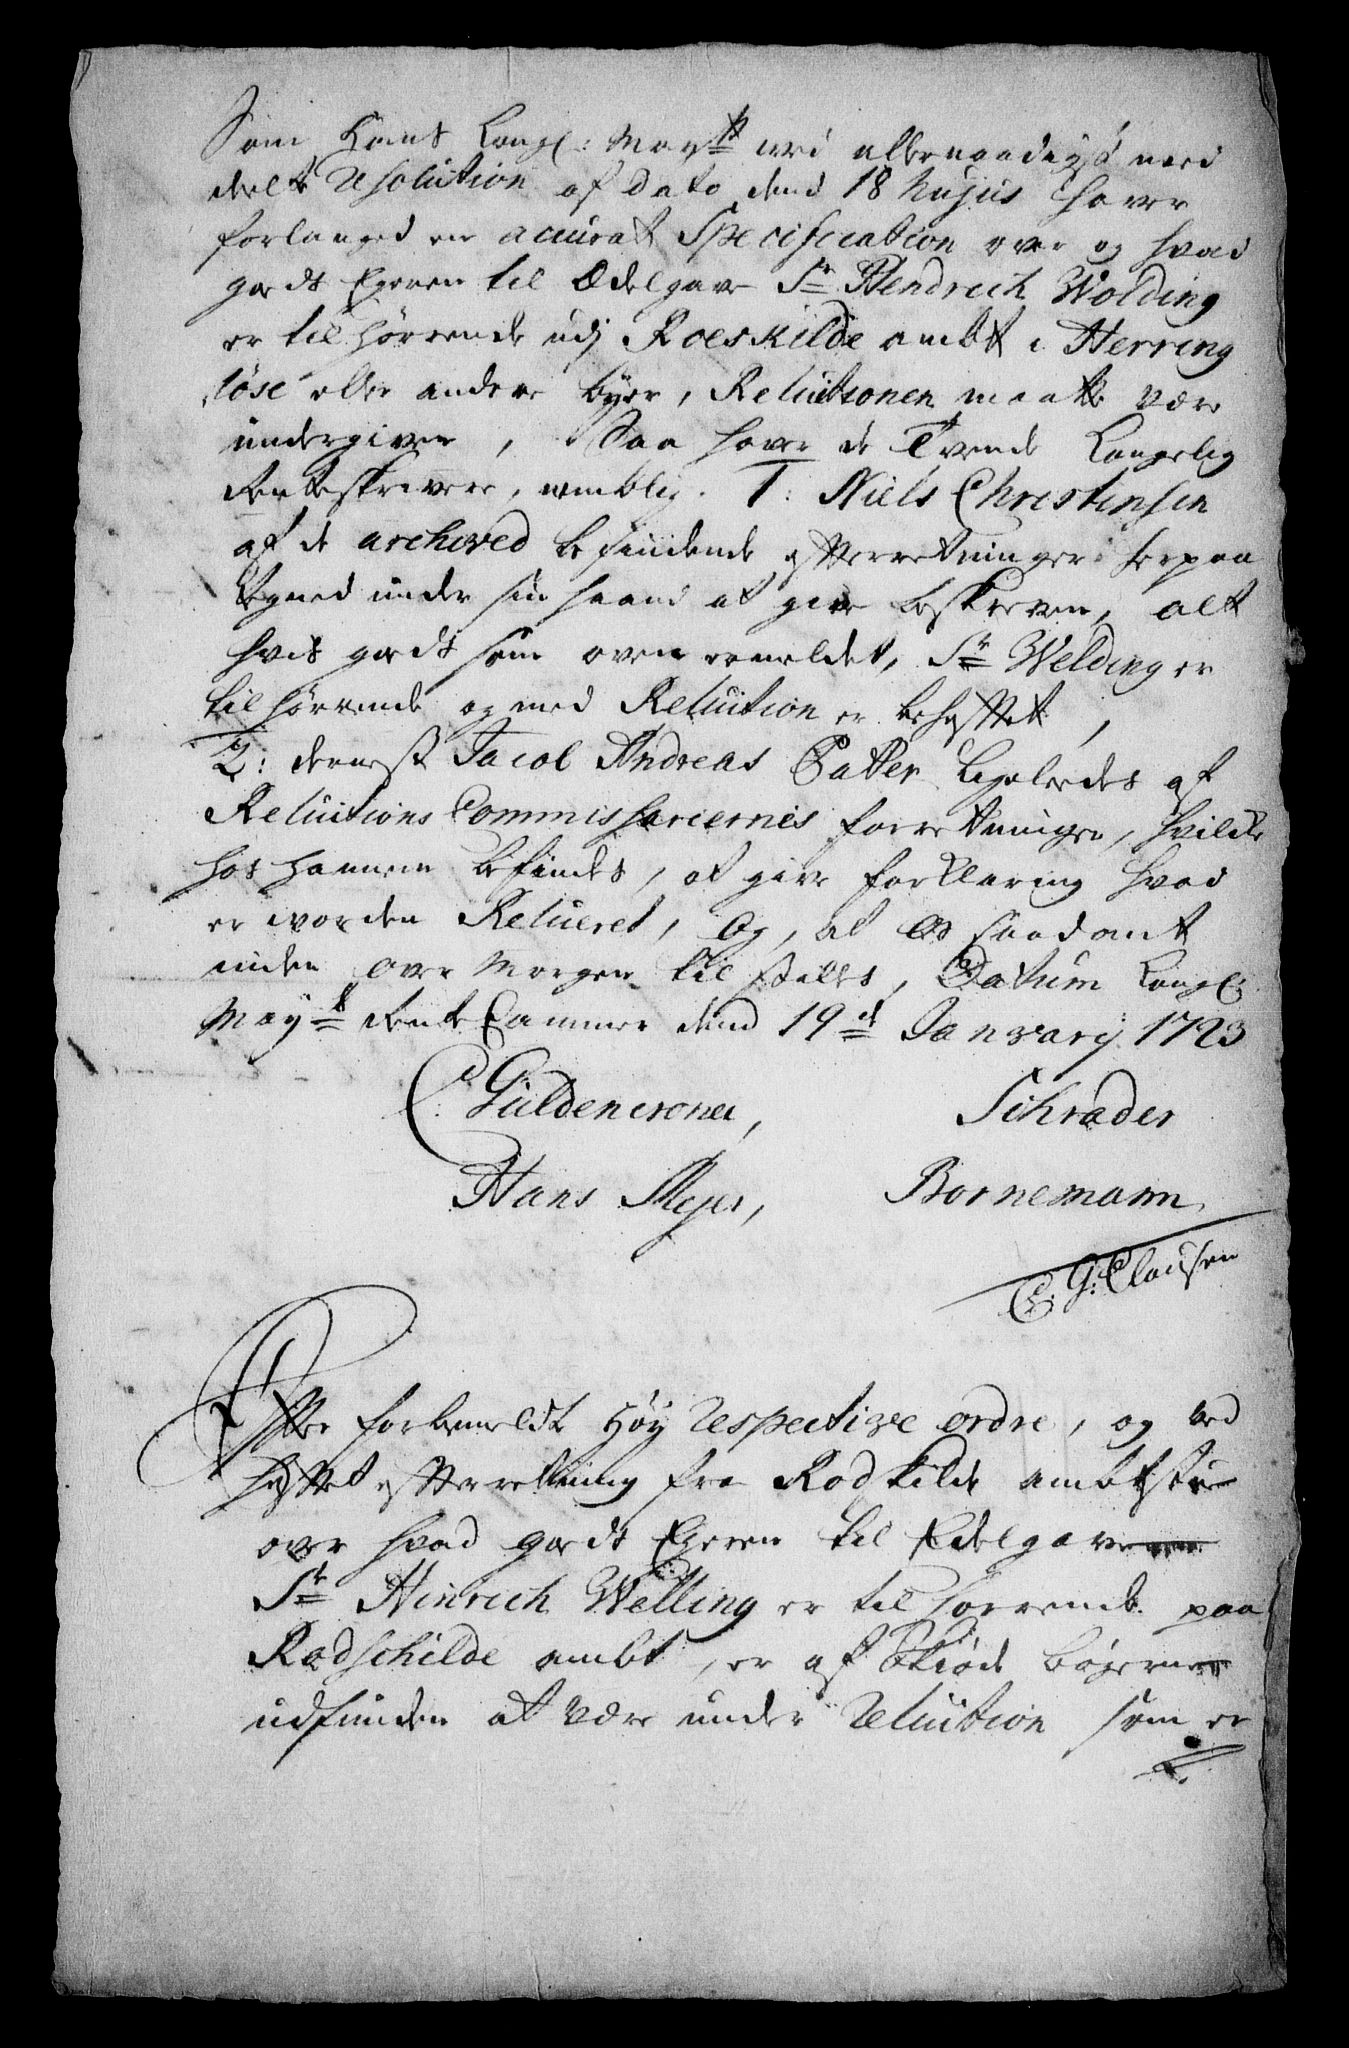 Som Hans Kongl: May<sup>ts</sup> ved allernaadigst med
deelte Resolution af Dato dend 18 hujus haver
forlanged en accurat Specification over og hvad
gods Eyeren til Edelgave S<sup>r</sup> Hendrich Wolding
er tilhørrende udj Roeskilde ambt i Herring
löse eller andere byer, Reluitionen maatte være
undergiven, Saa haver de Tvende Kongelig
Renteskrivere, nemblig. 1: Niels Christensen
af de archived befindende efterretninger herpaa
tegned under sin haand at give beskreven, alt
hvis gods som oven ermeldet, S<sup>r</sup> Welding er
tilhørrende og med Reluition er behefftet,
2: dernest Jacob Andreas Patter ligeledes af
Reluitions Commissariernes forretninger, hvilcke
hos hannem befindes, at give forklaring hvad
er worden Relueret, Og, at os saadant
inden over Morgen tilstilles, Datum Kongl:
May<sup>ts</sup> Rente Cammer dend 19<sup>de</sup> Januarij 1723
C: Güldencrone,
Schrader
Hans Meyer,
Bornemann
C. G: Clausen
Efter forbemeldte Høy Respective ordre, og ved
hefftet efterretning fra Rodskilde ambtstue
over hvad gods Eyeren til Edelgave
S<sup>r</sup> Hinrich Welling er tilhørrende paa
Radschilde ambt, er af Skiøde bøgerne
udfunden at være under Reluition som er